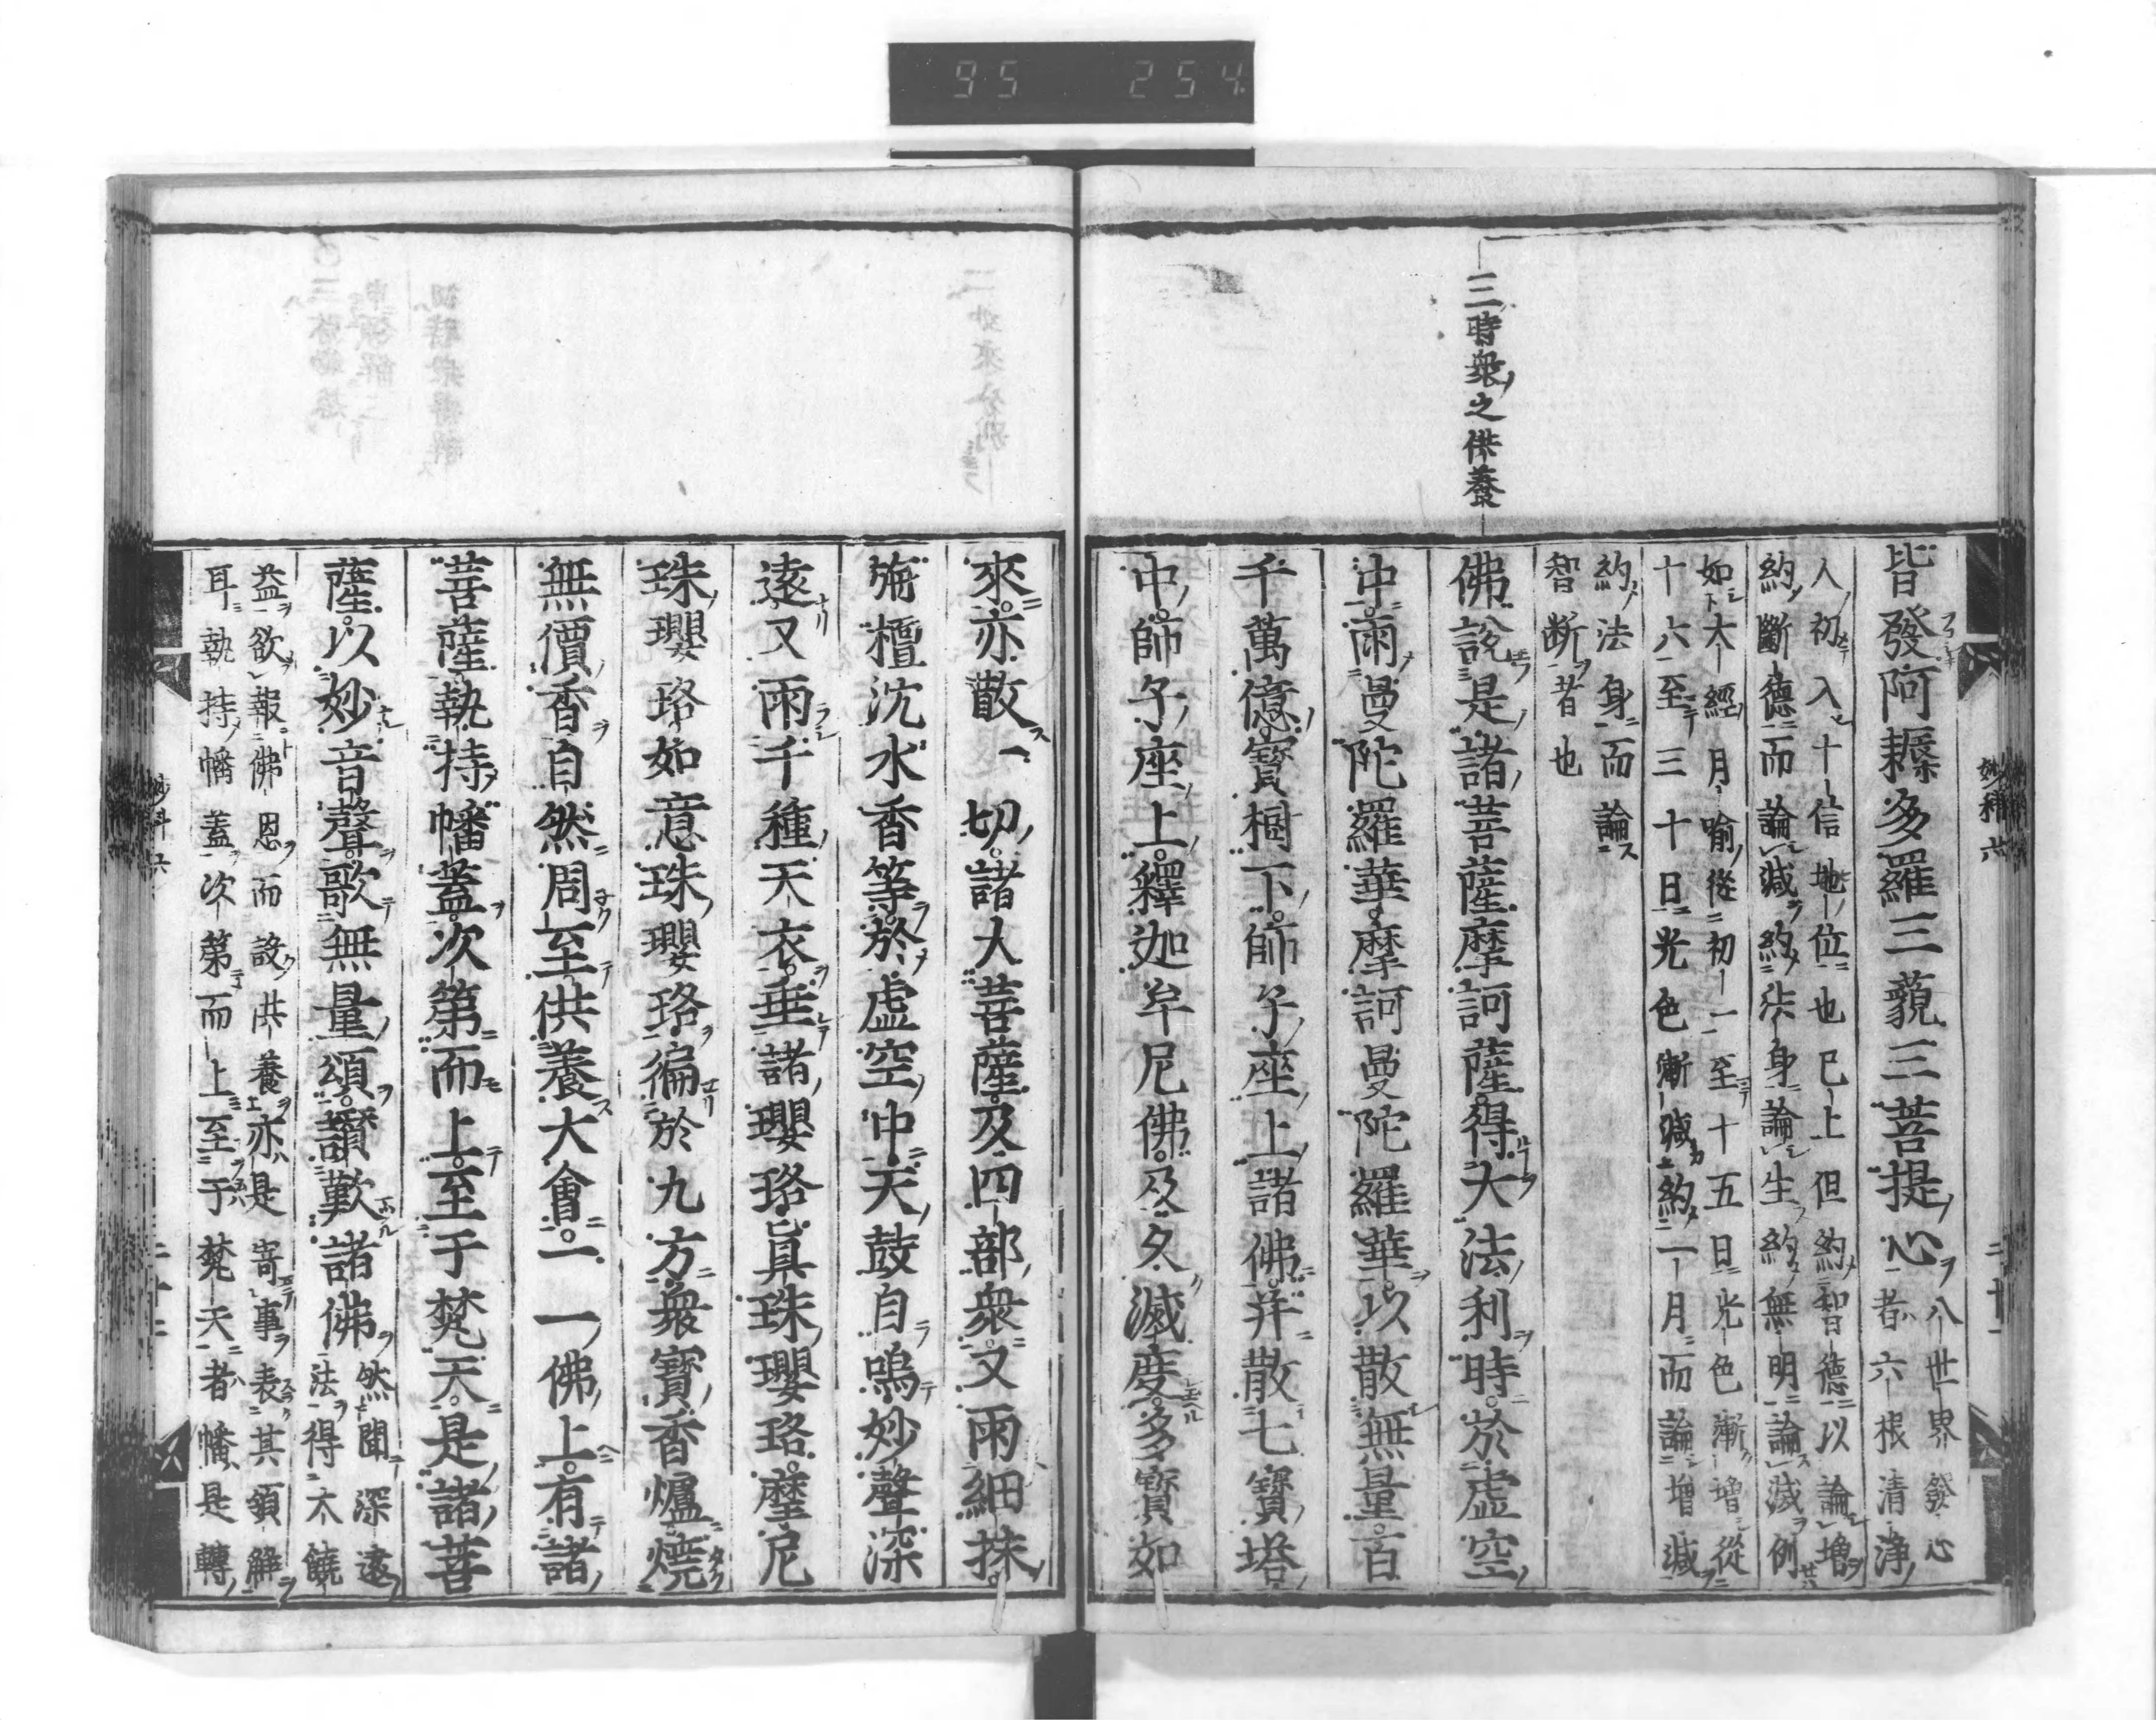 95 254
三時衆之供養
皆發阿耨多羅三藐三菩提心八世界發心
者六根清淨
人初入十信地位也已上但約智德以論增
約斷德而論減約法身論生約無明論滅例
如大經月喻從初一至十五日光色漸增從
十六至三十日光色漸減約一月而論增減
約法身而論
智斷者也
佛說是諸菩薩摩訶薩得大法利時於虛空
中雨曼陀羅華摩訶曼陀羅華以散無量百
千萬億寶樹下師子座上諸佛并散七寶塔
中師子座上釋迦牟尼佛及久滅度多寶如
來亦散一切諸大菩薩及四部衆又雨細抹
栴檀沈水香等於虛空中天鼓自鳴妙聲深
遠又雨千種天衣垂諸瓔珞眞珠瓔珞摩尼
珠瓔珞如意珠瓔珞徧於九方衆寶香爐燒
無價香自然周至供養大會一一佛上有諸
菩薩執持幡蓋次第而上至于梵天是諸菩
薩以妙音聲歌無量頌讚歎諸佛然聞深遠
法得大饒
益欲報佛恩而設供養亦是寄事表其領解
耳執持幡蓋次第而上至于梵天者幡是轉
妙科六
二十一
二十二